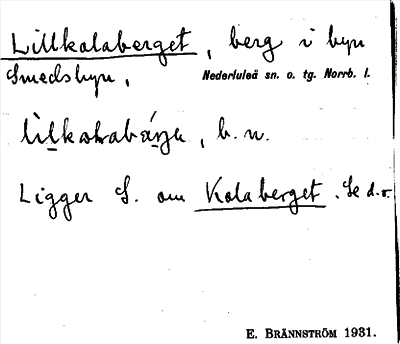 Lillkalaberget, berg i byn
Smedsbyn, Nederluleå sn. o. tg. Norrb. l.
b. n.
Ligger S. om Kalaberget. Se d. o.
E. BRÄNNSTRÖM 1931.